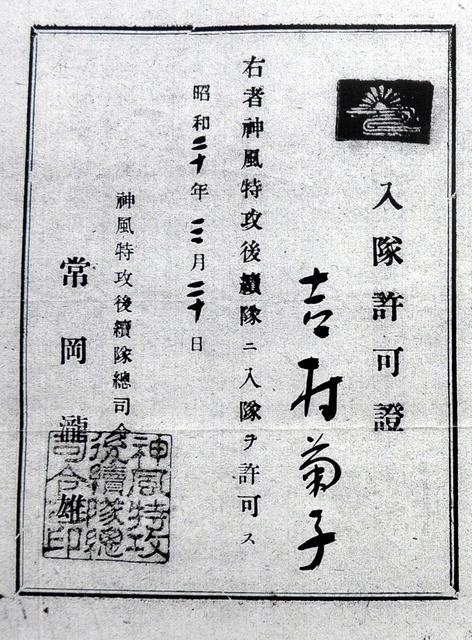 入隊許可證
吉村菊子
右者神風特攻後續隊ニ入隊ヲ許可ス
昭和二十年三月二十日
神風特攻後續隊總司令
常岡瀧雄
神風特攻
後續隊總
司令之印